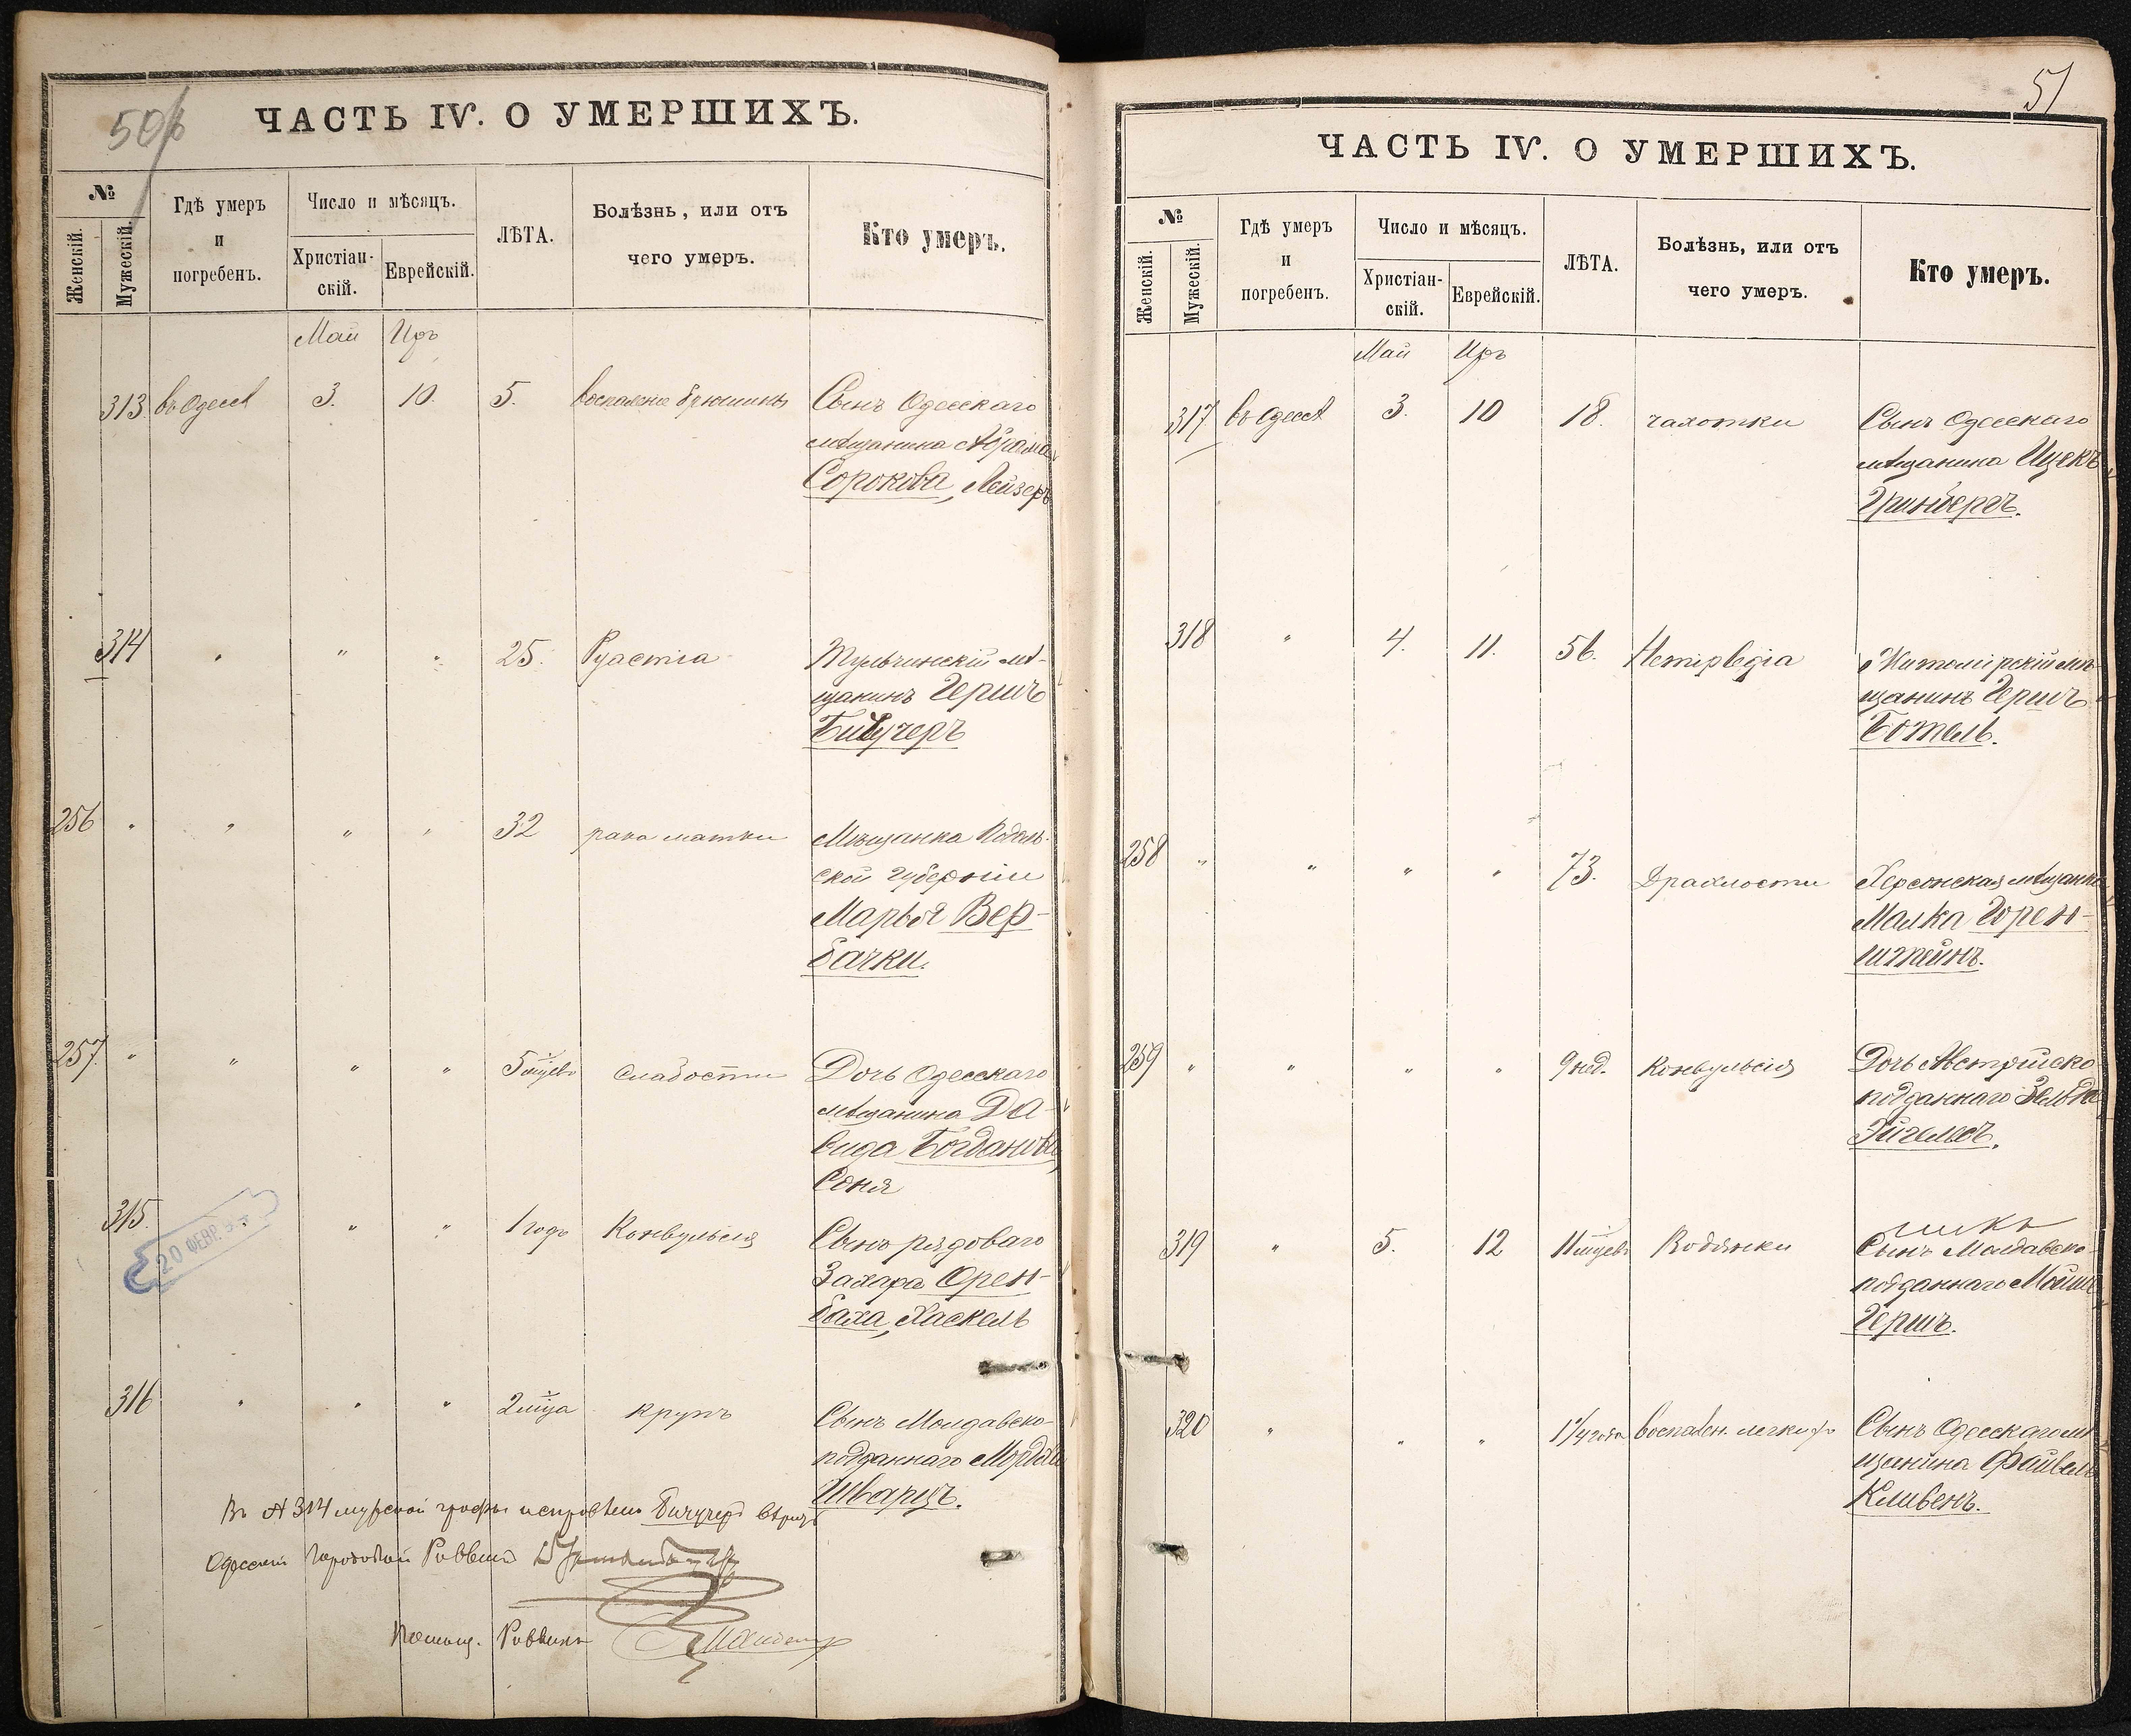 50
ЧАСТЬ IV. О УМЕРШИХЪ.
№
Женскій.
Мужескій.
Гдѣ умеръ
и
погребенъ.
Число и мѣсяцъ.
Христіан-
скій.
Еврейскій.
ЛѢТА.
Болѣзнь, или отъ
чего умеръ.
Кто умеръ.
Май Иръ
313 въ Одессѣ 3. 10. 5. воспаленіе брюшины Сынъ Одесскаго
мѣщанина Абрама
Сорокова, Лейзеръ
314 " " " 25. Тульчинскій мѣ-
щанинъ Гершъ
256 " " " " 32 рака матки Мѣщанка Подоль-
ской губерніи
Марья Вер-
бачки.
257 " " " " 5 мцевъ Слабости Дочь Одесскаго
мѣщанина Да-
вида Богданова,
Соня
20 ФЕВР.
315. " " " 1 годъ Конвульсія Сынъ рядоваго
Захара Орен-
баха, Хаскель
316 " " " 2 мца крупъ Сынъ Молдавско-
подданнаго Мордка
Шварцъ.
Въ № 314 мужской графы исправлено Бичучеръ вѣрно
Одесскій Городовой Раввинъ
Помощ. Раввина
51
ЧАСТЬ IV. О УМЕРШИХЪ.
№
Женскій.
Мужескій.
Гдѣ умеръ
и
погребенъ.
Число и мѣсяцъ.
Христіан-
скій.
Еврейскій.
ЛѢТА.
Болѣзнь, или отъ
чего умеръ.
Кто умеръ.
Май Иръ
317 въ Одессѣ 3. 10 18. чахотки Сынъ Одесскаго
мѣщанина Ицекъ
Гринбергъ.
318 " 4. 11. 56. Hemiplegia Житомірскій мѣ-
щанинъ Гершъ
Ботель.
258 " " " " 73. Дряхлости Херсонская мѣщанка
Малка Горен-
штейнъ.
259 " " " " 9 нед. Конвульсія Дочь Австрійско-
подданнаго Зельда
319 " 5. 12 11 мцевъ Водянки Сынъ Молдавско-
подданнаго Мошко
Гершъ.
320 " " " 1 1/4 года воспален. легкихъ Сынъ Одесскаго мѣ-
щанина Файвель
Кливенъ.